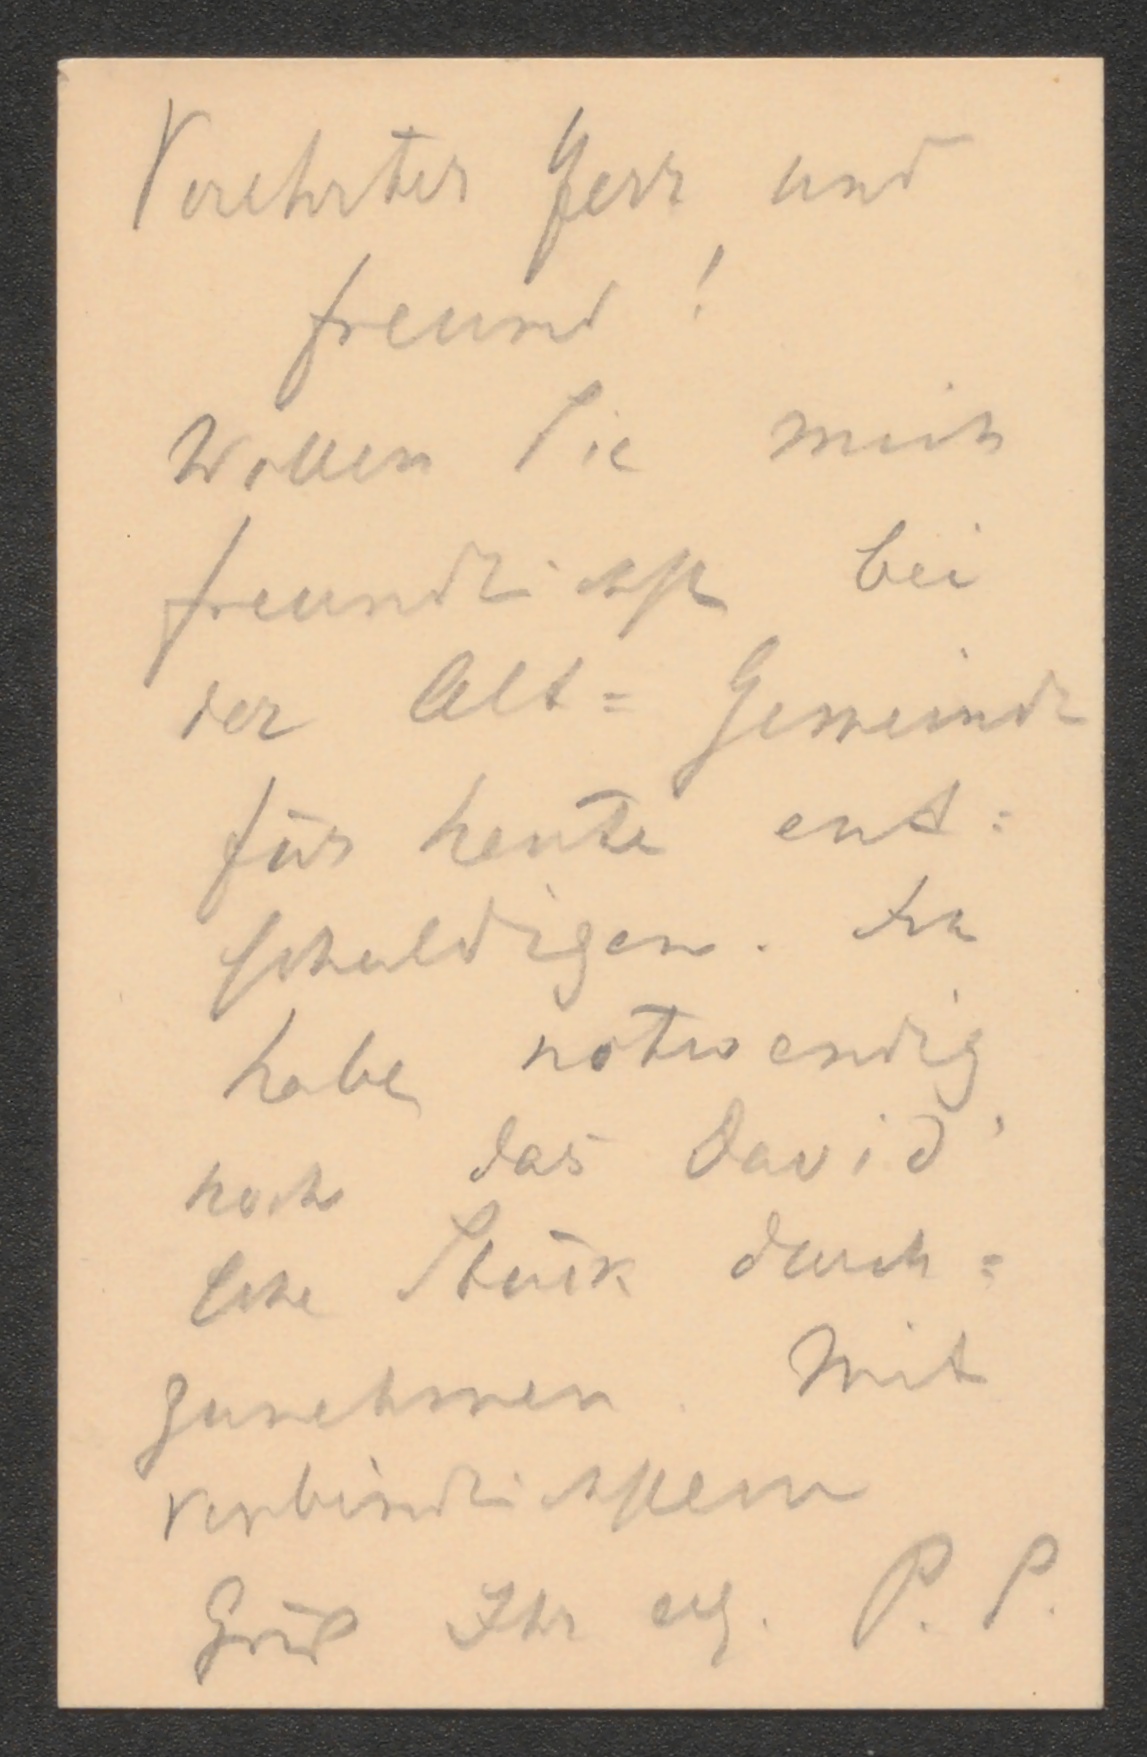 Verehrter Herr und
Freund!
Wollen Sie mich
freundlichst bei
der Alt=Gemeinde
für heute ent=
schuldigen. Ich
habe notwendig
noch das David'
sche Stück durch=
zunehmen. Mit
verbindlichstem
Gruß Ihr erg. P. P.